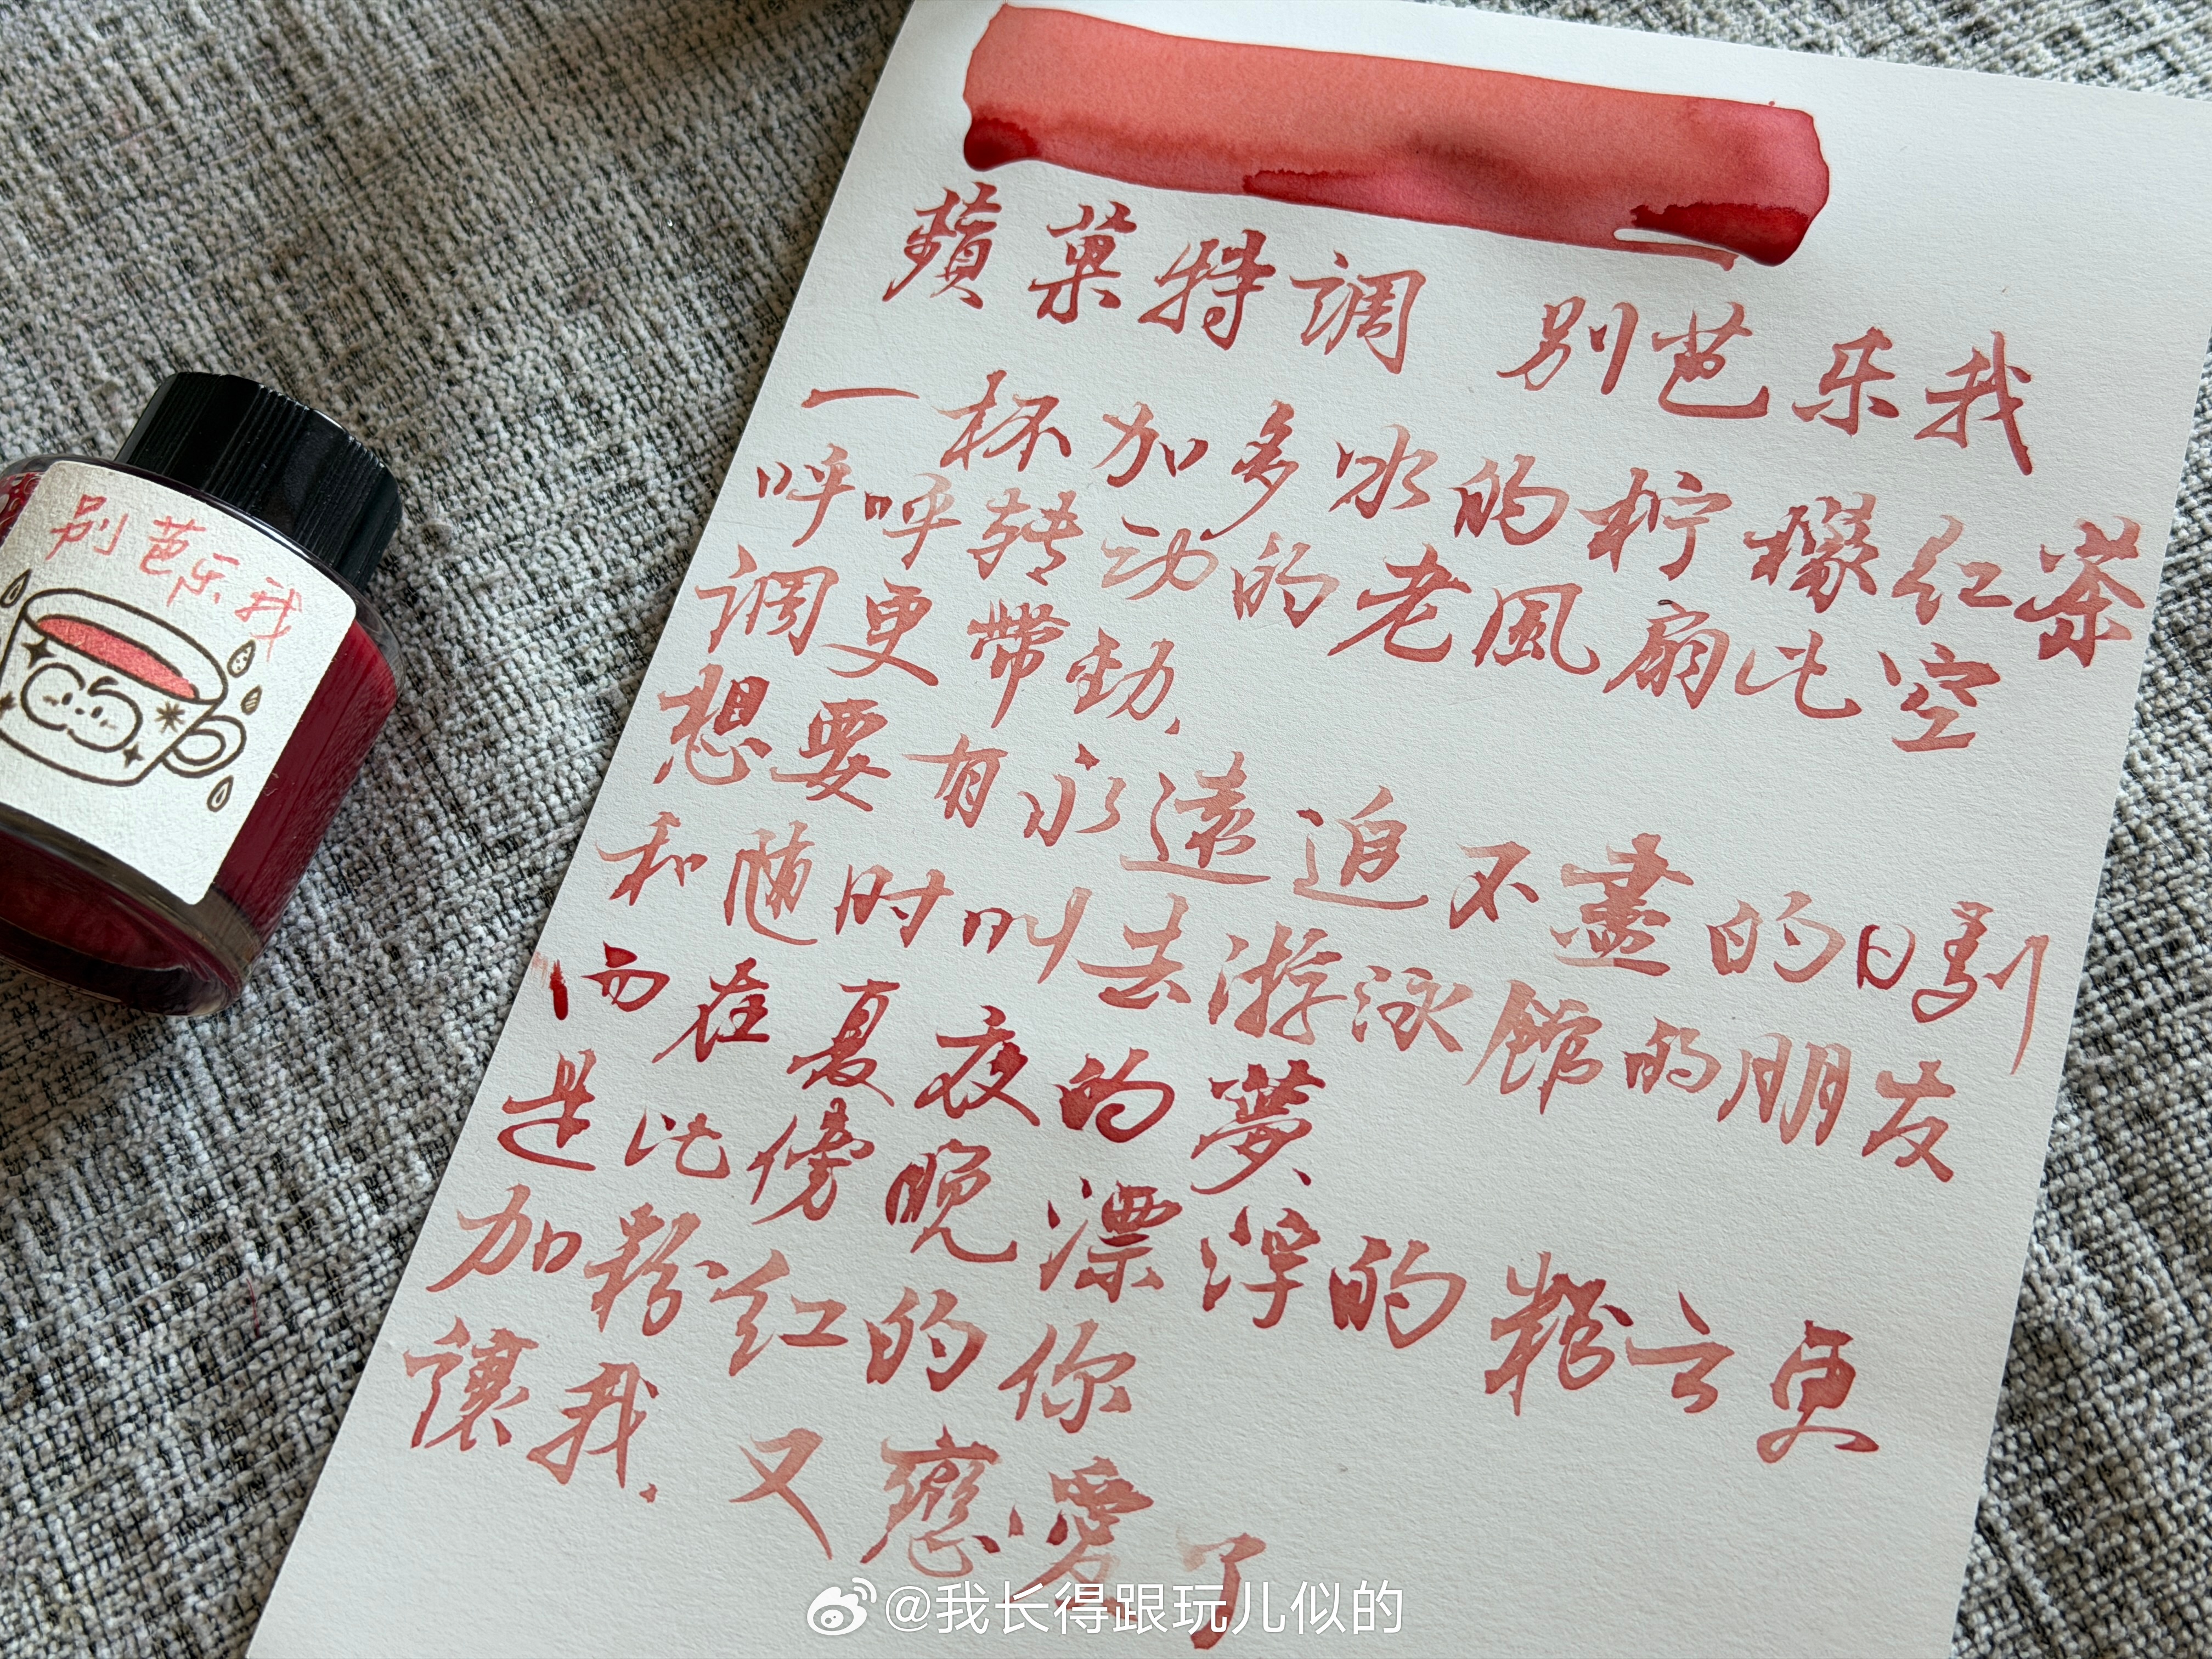 蘋菓特調 别芭乐我
一杯加多冰的柠檬红茶
呼呼转动的老風扇比空
调更带劲.
想要有永遠追不盡的日劇
和随时叫去游泳館的朋友
而在夏夜的夢
是比傍晚漂浮的粉云更
加粉红的你
讓我.又戀愛了
别芭乐我
@我长得跟玩儿似的